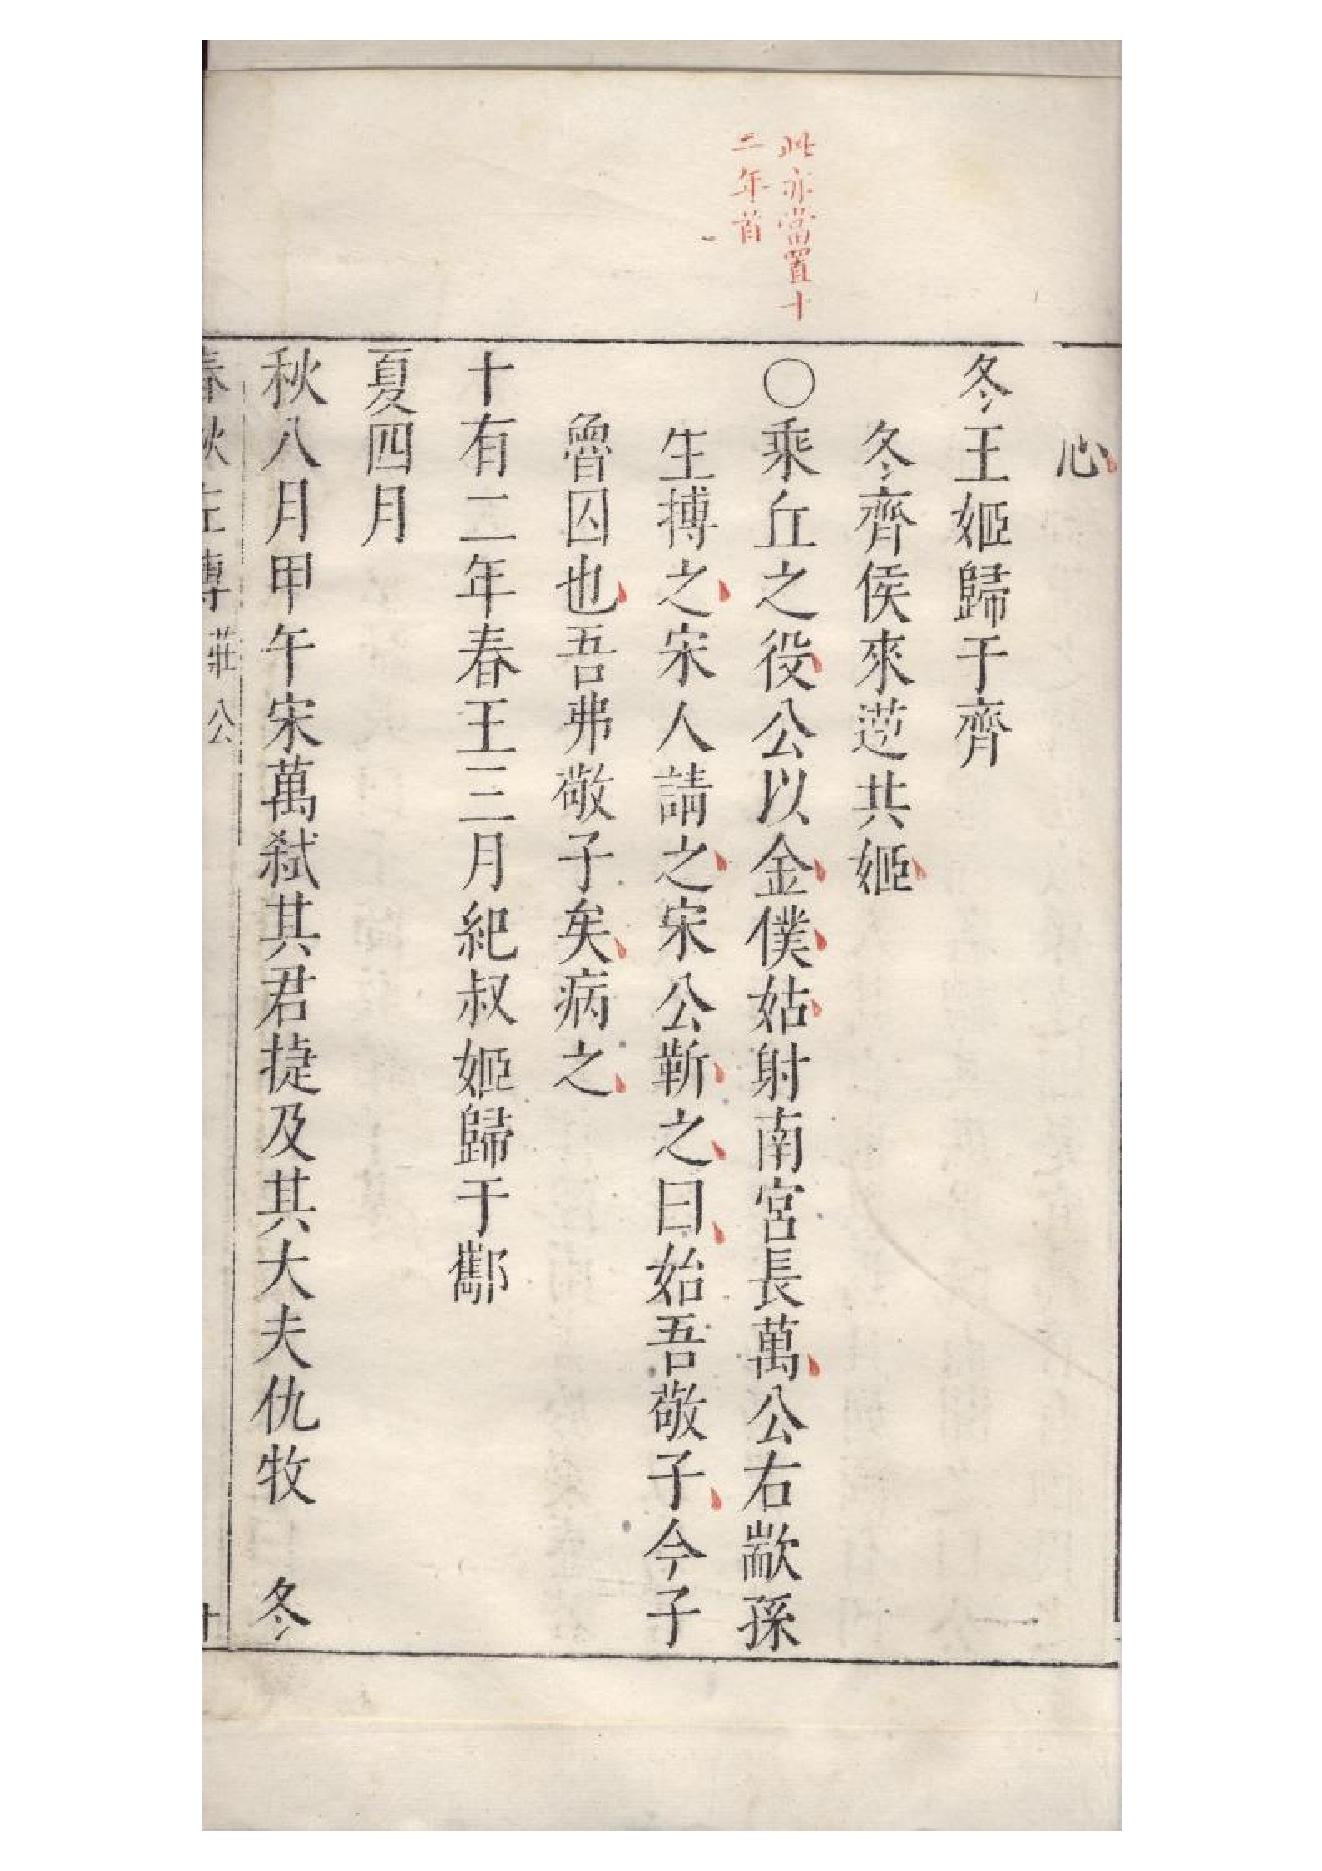 此亦當置十
二年首
心
冬王姬歸于齊
冬齊侯來逆共姬
〇乘丘之役公以金僕姑射南宮長萬公右歂孫
生搏之宋人請之宋公靳之曰始吾敬子今子
魯囚也吾弗敬子矣病之
十有二年春王三月紀叔姬歸于酅
夏四月
秋八月甲午宋萬弒其君捷及其大夫仇牧 冬
春秋左傳 莊公